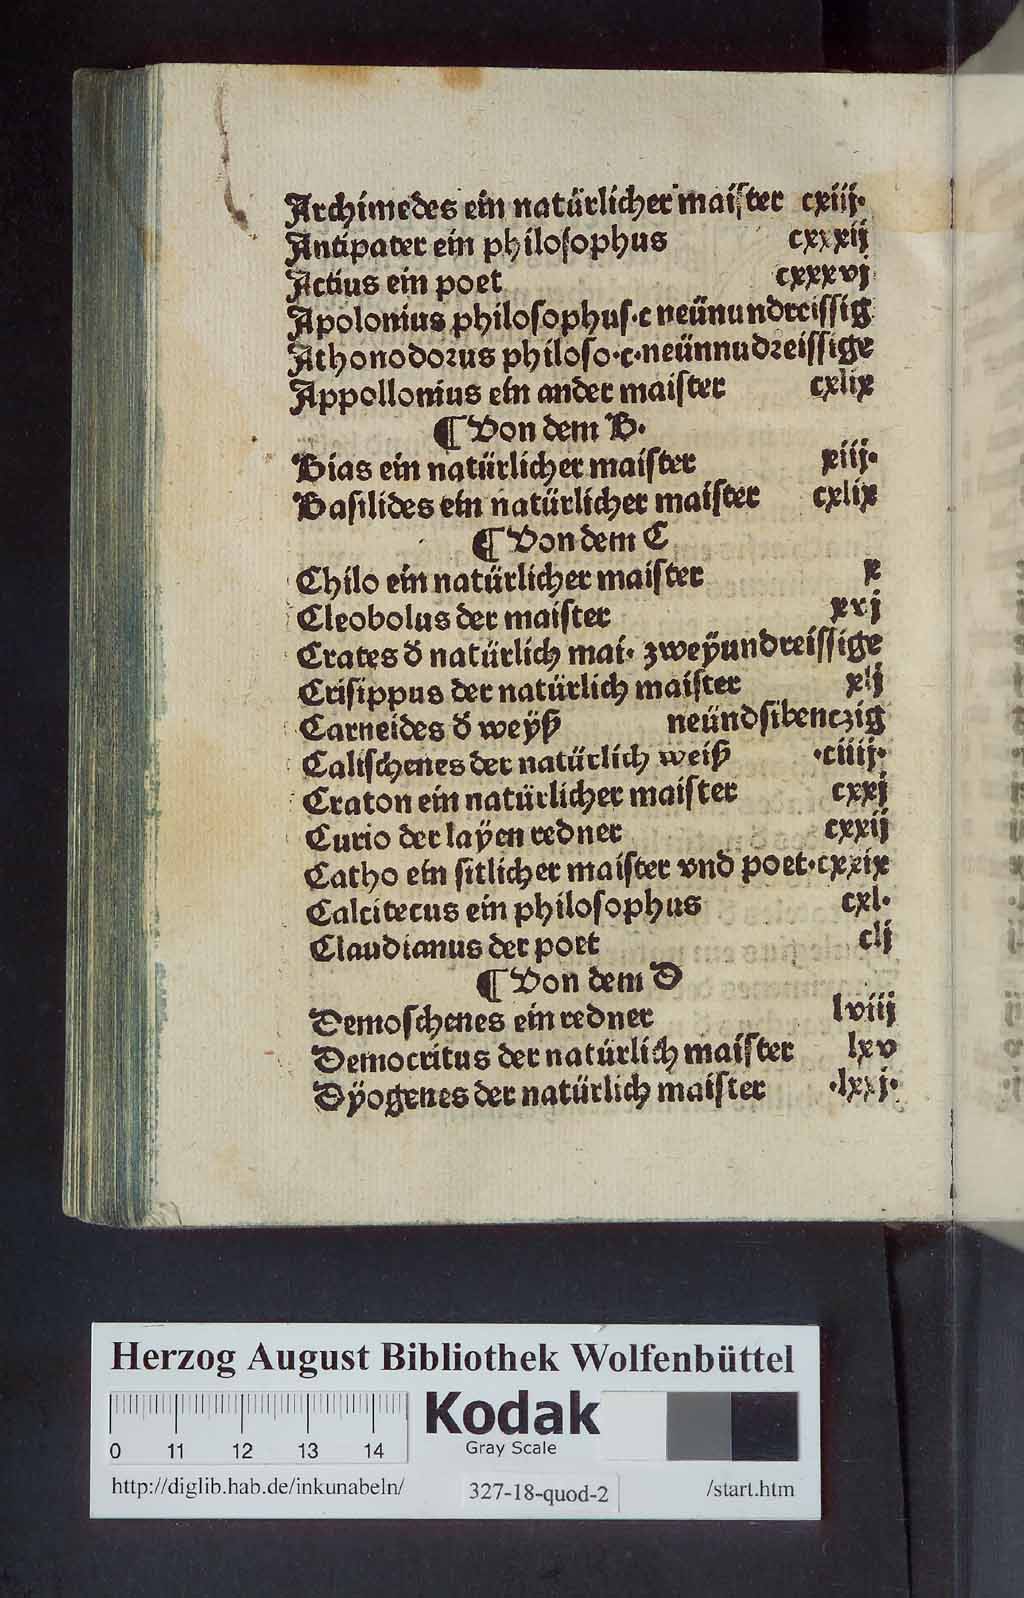 Archimedes ein natürlicher maiſter cxiij·
Antipater ein philoſophus cxxxij
Actius ein poet cxxxvj
Apolonius philoſophuſ·c neünundreiſſig
Athonodoꝛus philoſo·c·neünnudꝛeiſſige
Appollonius ein ander maiſter cxlix
¶ Von dem B·
Bias ein natürlicher maiſter xiij·
Baſilides ein natürlicher maiſter cxlix
¶ Von dem C
Chilo ein natürlicher maiſter x
Cleobolus der maiſter xvj
Crates d̕ natürlich mai· zweÿundreiſſige
Criſippus der natürlich maiſter xlj
Carneides d̕ weÿß neündſibenczig
Caliſchenes der natürlich weiß ·ciiij·
Craton ein natürlicher maiſter cxxj
Curio der laÿen redner cxxij
Catho ein ſitlicher maiſter vnd poet·cxxix
Calcitecus ein philoſophus cxl·
Claudianus der poet clj
¶ Von dem D
Demoſchenes ein redner lviij
Democritus der natürlich maiſter lxv
Dÿogenes der natürlich maiſter ·lxxj·
Herzog August Bibliothek Wolfenbüttel
0 11 12 13 14
Kodak
Gray Scale
http://diglib.hab.de/inkunabeln/ 327-18-quod-2 /start.htm